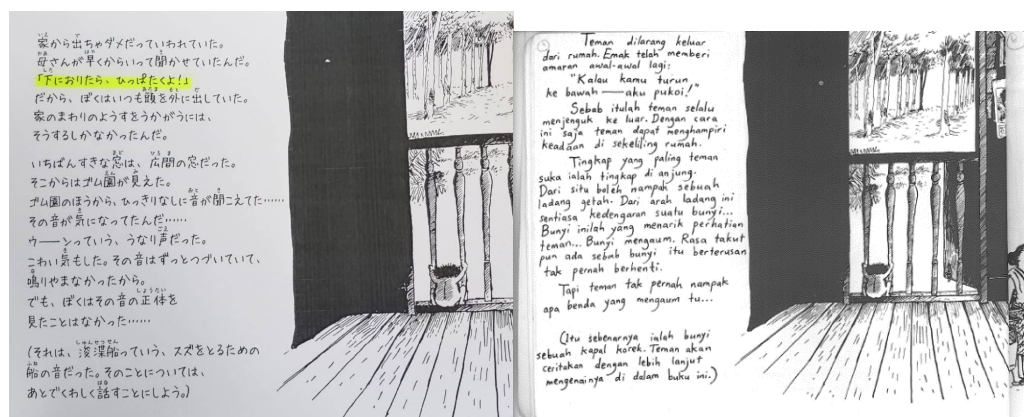 家から出ちゃダメだっていわれていた。
母さんが早くからいって聞かせていたんだ。
「下におりたら、ひっぱたくよ！」
だから、ぼくはいつも頭を外に出していた。
家のまわりのようすをうかがうには、
そうするしかなかったんだ。
いちばんすきな窓は、広間の窓だった。
そこからはゴム園が見えた。
ゴム園のほうから、ひっきりなしに音が聞こえてた……
その音が気になってたんだ……
ウーーンっていう、うなり声だった。
こわい気もした。その音はずっとつづいていて、
鳴りやまなかったから。
でも、ぼくはその音の正体を
見たことはなかった……
(それは、浚渫船っていう、スズをとるための
船の音だった。そのことについては、
あとでくわしく話すことにしよう。)
Teman dilarang keluar
dari rumah. Emak telah memberi
amaran awal-awal lagi:
"Kalau kamu turun
ke bawah — aku pukoi!"
Sebab itulah teman selalu
menjenguk ke luar. Dengan cara
ini saja teman dapat menghampiri
keadaan di sekeliling rumah.
Tingkap yang paling teman
suka ialah tingkap di anjung.
Dari situ boleh nampak sebuah
ladang getah. Dari arah ladang ini
sentiasa kedengaran suatu bunyi...
Bunyi inilah yang menarik perhatian
teman... Bunyi mengaum. Rasa takut
pun ada sebab bunyi itu berterusan
tak pernah berhenti.
Tapi teman tak pernah nampak
apa benda yang mengaum tu...
(Itu sebenarnya ialah bunyi
sebuah kapal korek. Teman akan
ceritakan dengan lebih lanjut
mengenainya di dalam buku ini.)